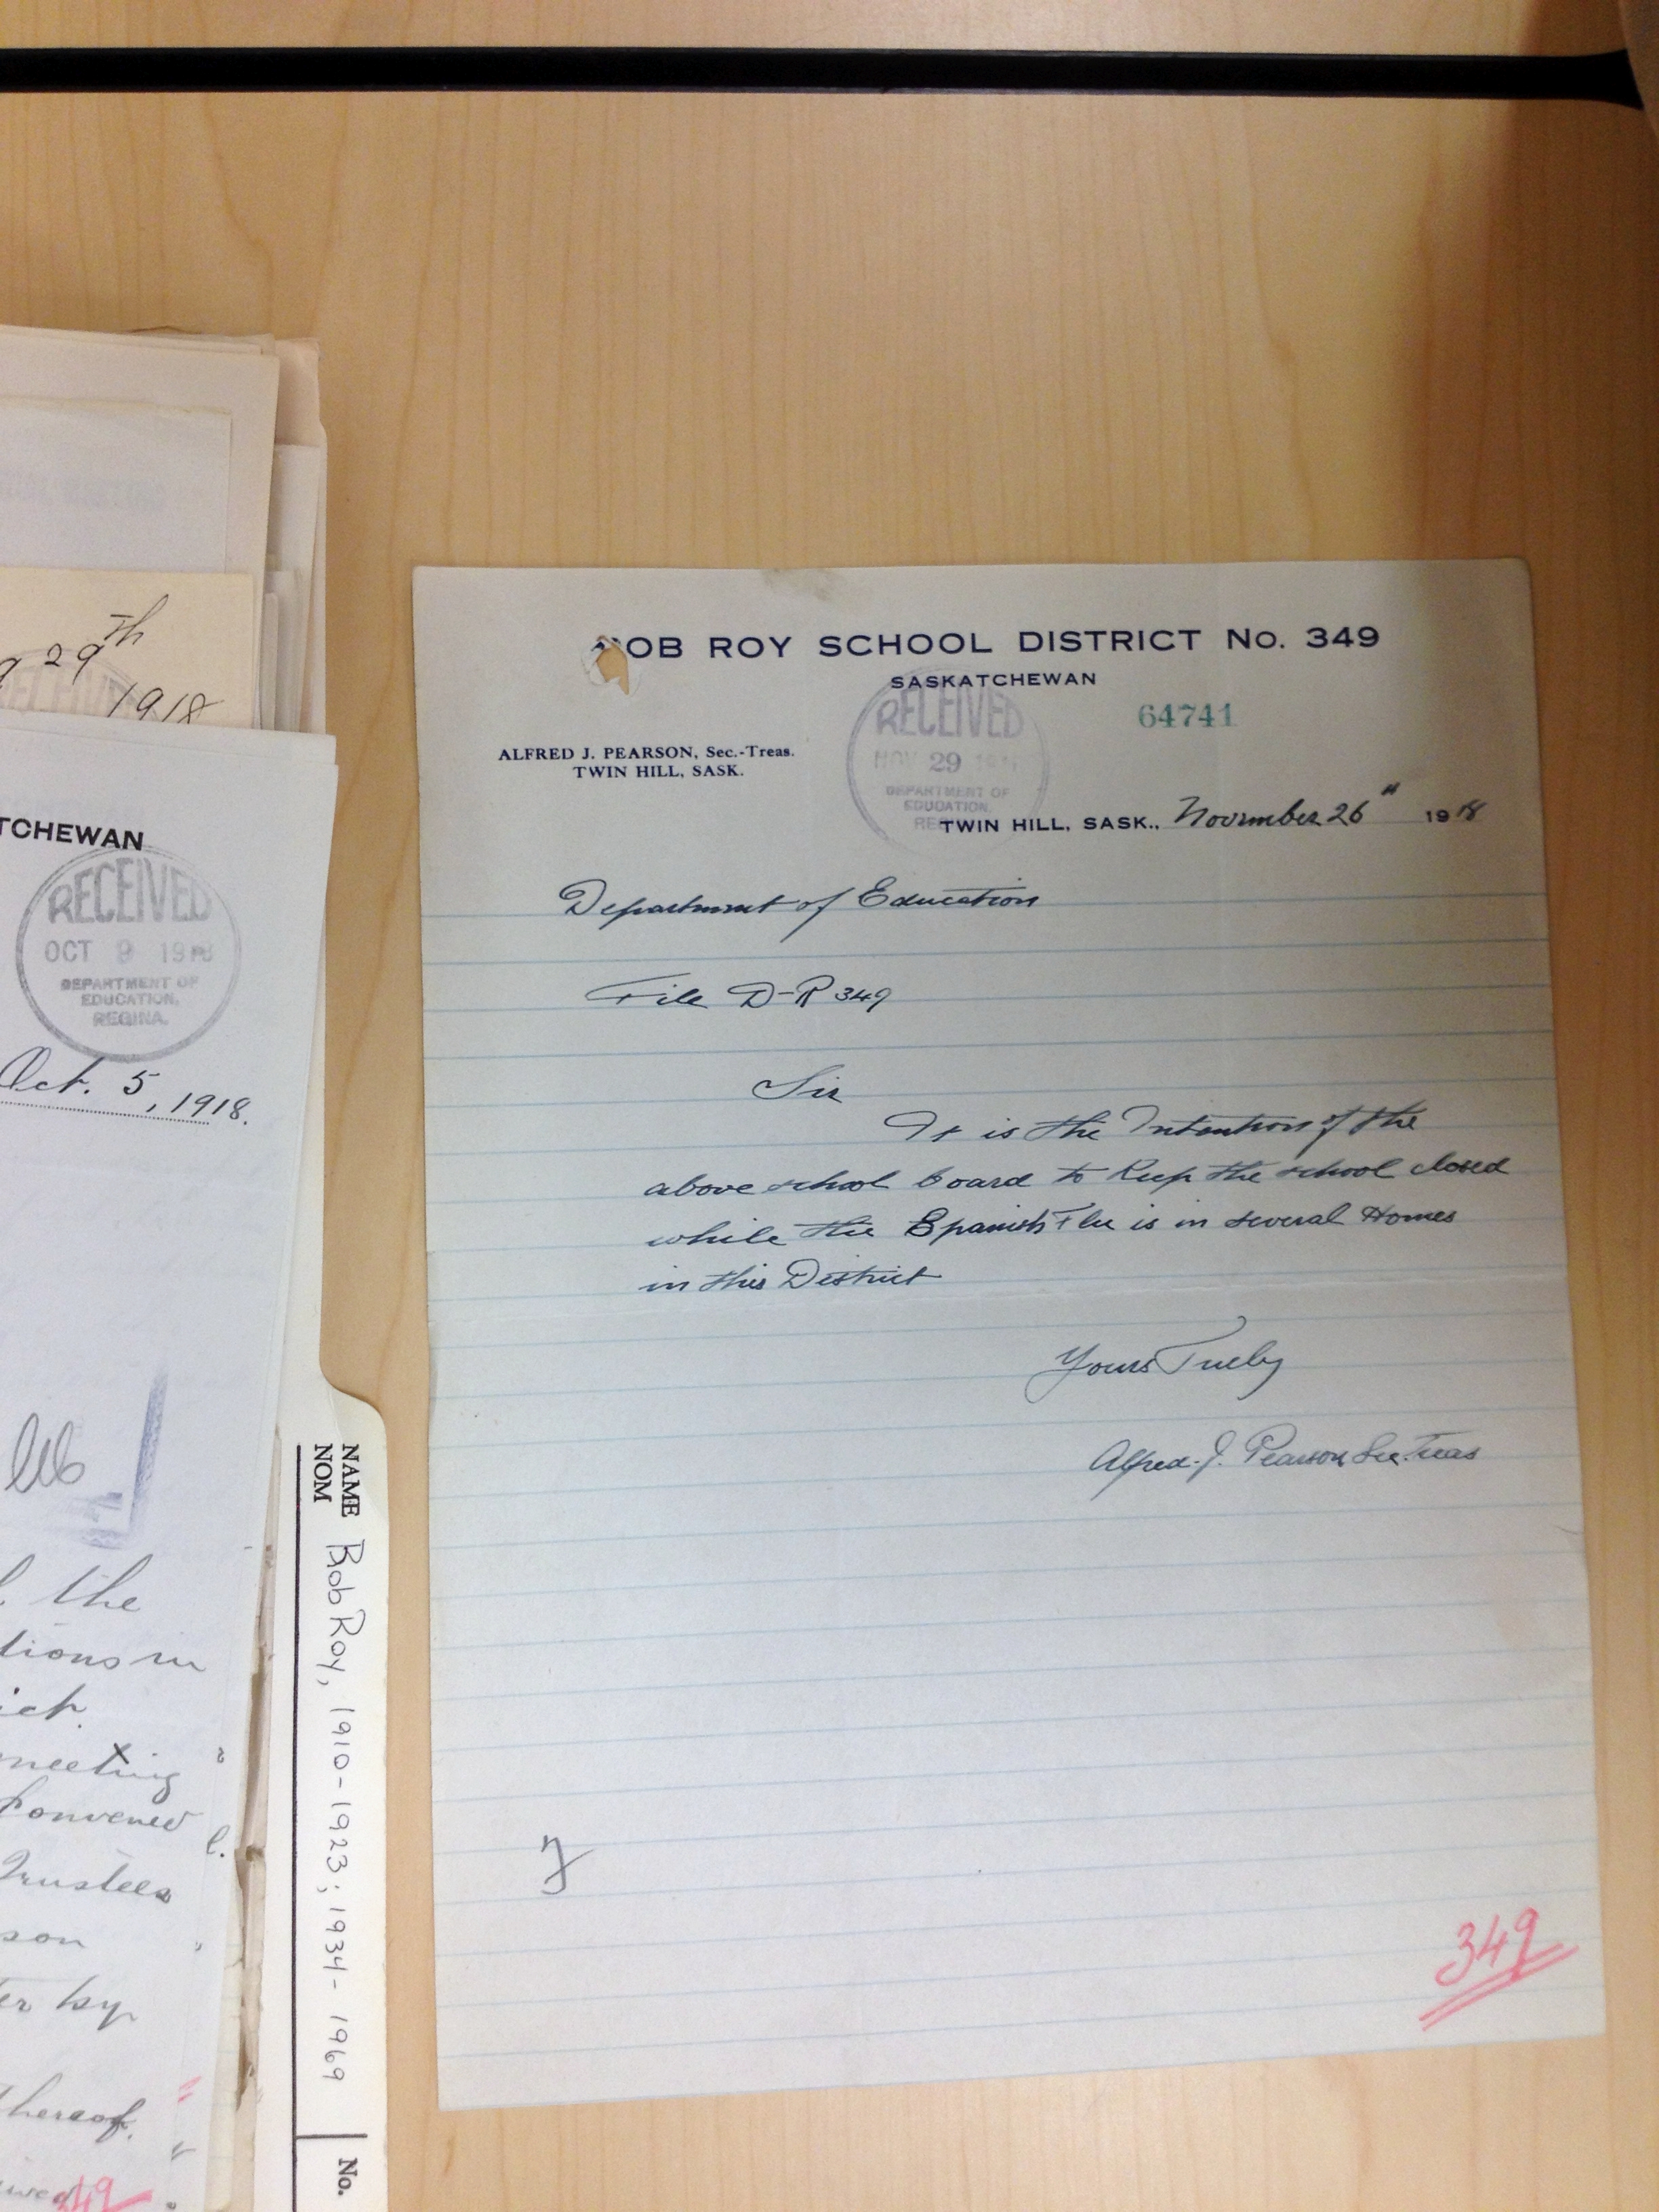 29th
1918
TCHEWAN
RECEIVED
OCT 9 19
DEPARTMENT OF
EDUCATION,
REGINA.
Oct. 5, 1918.
the
tions in
meeting
Convened
Trustees
son
er by
thereof.
349
NAME
NOM
Bob Roy, 1910-1923; 1934-1969
No.
OB ROY SCHOOL DISTRICT No. 349
SASKATCHEWAN
64741
RECEIVED
NOV 29
DEPARTMENT OF
EDUCATION,
ALFRED J. PEARSON, Sec.-Treas.
TWIN HILL, SASK.
TWIN HILL, SASK., November 26" 1918
Department of Education
File D-R 349
Sir
It is the Intention of the
above school board to Keep the school closed
while the Spanish Flu is in several Homes
in this District
Yours Truely
Alfred. J. Pearson Sec. Treas
349